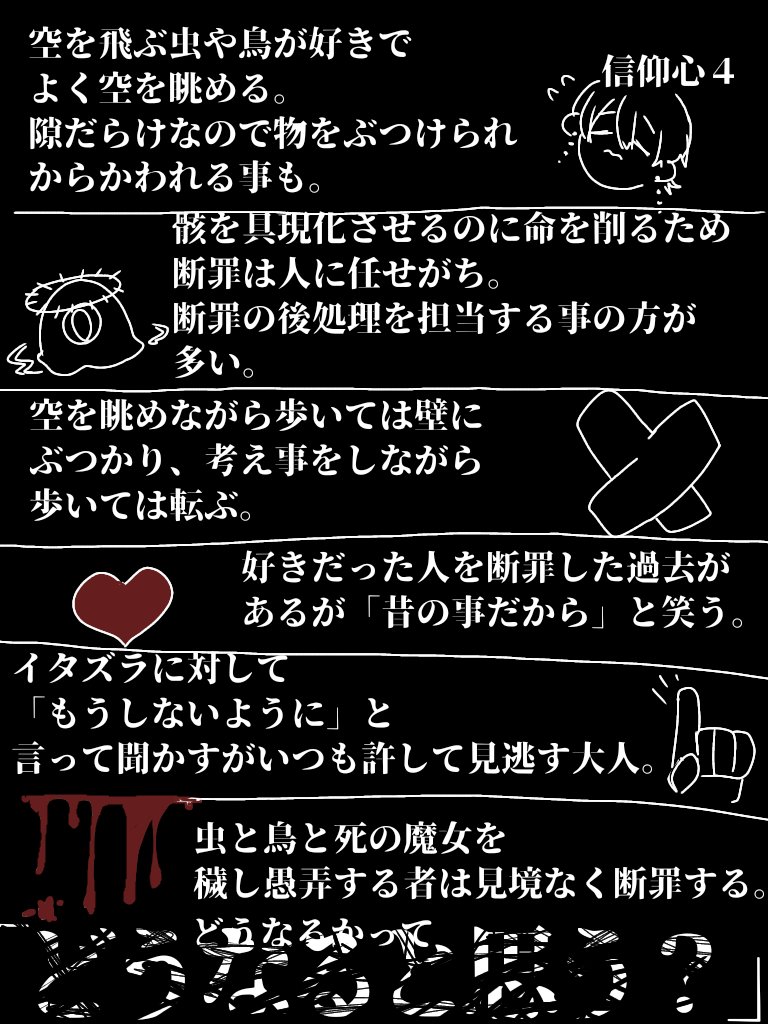 空を飛ぶ虫や鳥が好きで
よく空を眺める。
隙だらけなので物をぶつけられ
からかわれる事も。
信仰心４
骸を具現化させるのに命を削るため
断罪は人に任せがち。
断罪の後処理を担当する事の方が
多い。
空を眺めながら歩いては壁に
ぶつかり、考え事をしながら
歩いては転ぶ。
好きだった人を断罪した過去が
あるが「昔の事だから」と笑う。
イタズラに対して
「もうしないように」と
言って聞かすがいつも許して見逃す大人。
虫と鳥と死の魔女を
穢し愚弄する者は見境なく断罪する。
どうなるかって
どうなると思う？」